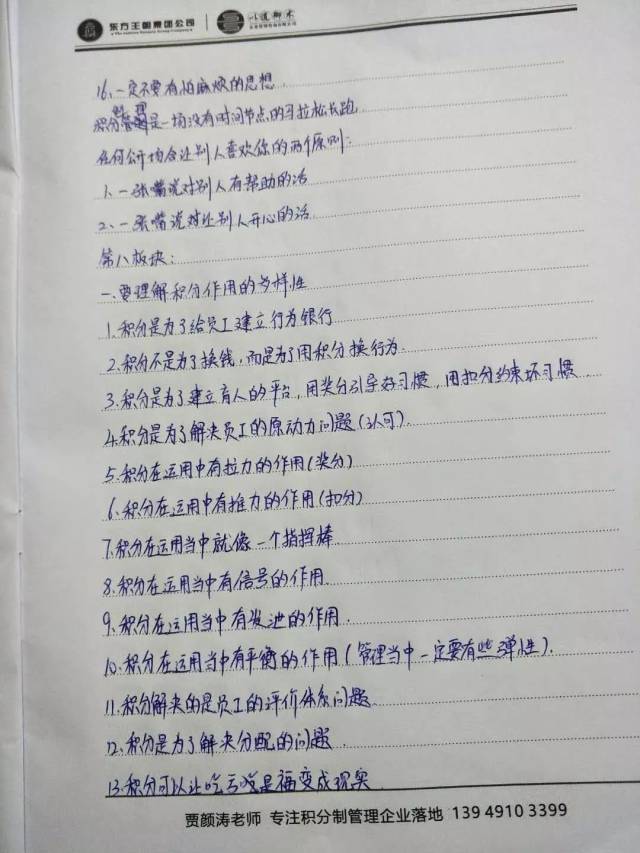 东方王朝集团公司
以道御术
16、一定不要有怕麻烦的思想
积分管理是一场没有时间节点的马拉松长跑
任何公开场合让别人喜欢你的两个原则:
1、一张嘴说对别人有帮助的话
2、一张嘴说对让别人开心的话
第八板块:
一、要理解积分作用的多样性
1.积分是为了给员工建立行为银行
2.积分不是为了换钱,而是为了用积分换行为.
3.积分是为了建立育人的平台,用奖分引导好习惯,用扣分约束坏习惯
4.积分是为了解决员工的原动力问题(认可).
5.积分在运用中有拉力的作用(奖分)
6.积分在运用中有推力的作用(扣分)
7.积分在运用当中就像一个指挥棒
8.积分在运用当中有信号的作用.
9.积分在运用当中有发泄的作用.
10.积分在运用当中有平衡的作用(管理当中一定要有些弹性).
11.积分解决的是员工的评价体系问题.
12.积分是为了解决分配的问题.
13.积分可以让吃亏就是福变成现实
贾颜涛老师 专注积分制管理企业落地 139 4910 3399